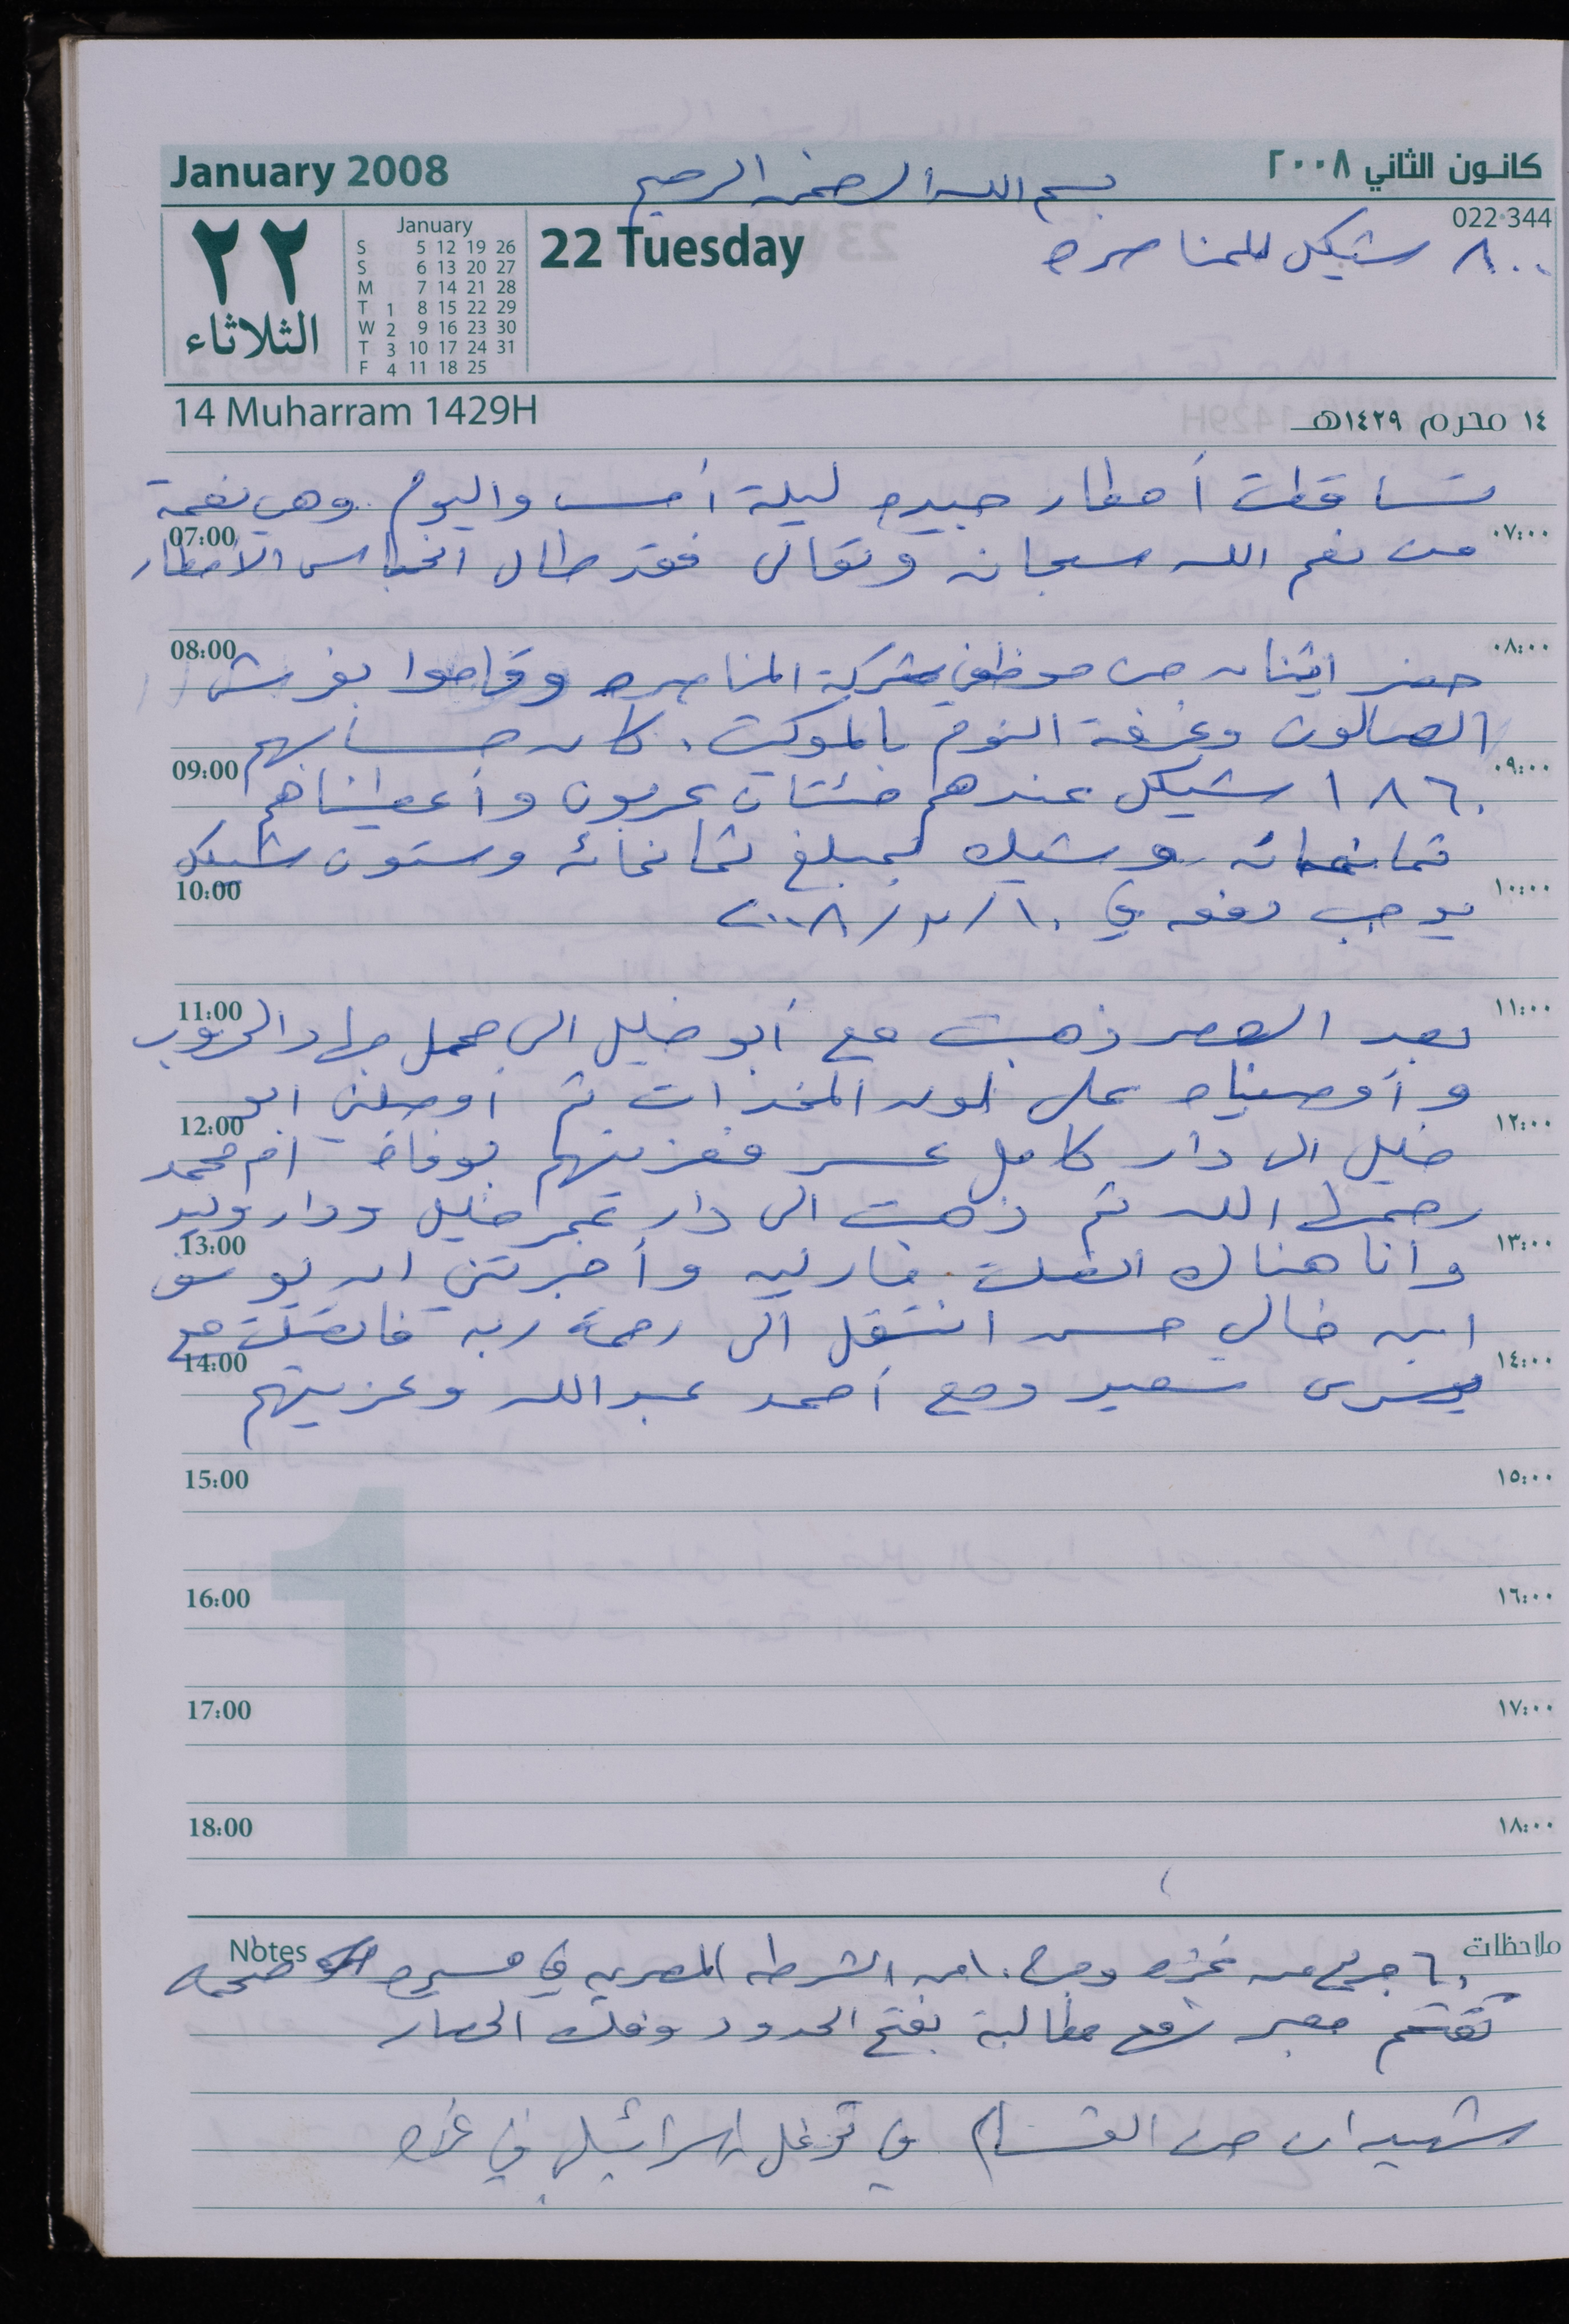 January 2008
بسم الله الرحمن الرحيم
كانون الثاني ٢٠٠٨
022-344
٢٢
الثلاثاء
January
S 5 12 19 26
S 6 13 20 27
M 7 14 21 28
T 1 8 15 22 29
W 2 9 16 23 30
T 3 10 17 24 31
F 4 11 18 25
22 Tuesday
٨٠٠ شيكل للمناصره
14 Muharram 1429H
١٤ محرم ١٤٢٩هـ
تساقطت أمطار جيده ليلة أمس واليوم وهي نعمة
07:00 ٠٧:٠٠
من نعم الله سبحانه وتعالى فقد طال انحباس الأمطار
08:00 ٠٨:٠٠
حضر اثنان من موظفي شركة المناصره وقاموا بفرش
الصالون وغرفة النوم بالموكيت. كان حسابهم
09:00 ٠٩:٠٠
١٨٦٠ شيكل عندهم مئتان عربون وأعطيناهم
ثمانمائه وشيك بمبلغ ثمانمائه وستون شيكل
10:00 ١٠:٠٠
يوجب دفعه في ١٠/٣/٢٠٠٨
11:00 ١١:٠٠
بعد العصر ذهبت مع أبو خليل الى محمل جهاد الحروب
وأوصيناه على لون المخدات ثم أوصلني ابو
12:00 ١٢:٠٠
خليل الى دار كامل فعزيتهم بوفاة ام محمد
رحمها الله ثم ذهبت الى دار عمر خليل ودار وليد
13:00 ١٣:٠٠
وأنا هناك اتصلت وأخبرتني ان يوسف
ابن خالي حسن انتقل الى رحمة ربه فاتصلت مع
14:00 ١٤:٠٠
يسرى سعيد ومع أحمد عبدالله وعزيتهم
15:00 ١٥:٠٠
16:00 ١٦:٠٠
17:00 ١٧:٠٠
18:00 ١٨:٠٠
1
Notes ملاحظات
٦٠ جريح من غزه و ١٠ من الشرطه المصريه في مسيره ضخمه
تقتحم معبر رفح مطالبة بفتح الحدود وفك الحصار
شهيدان من القسام في توغل إسرائيلي في غزه